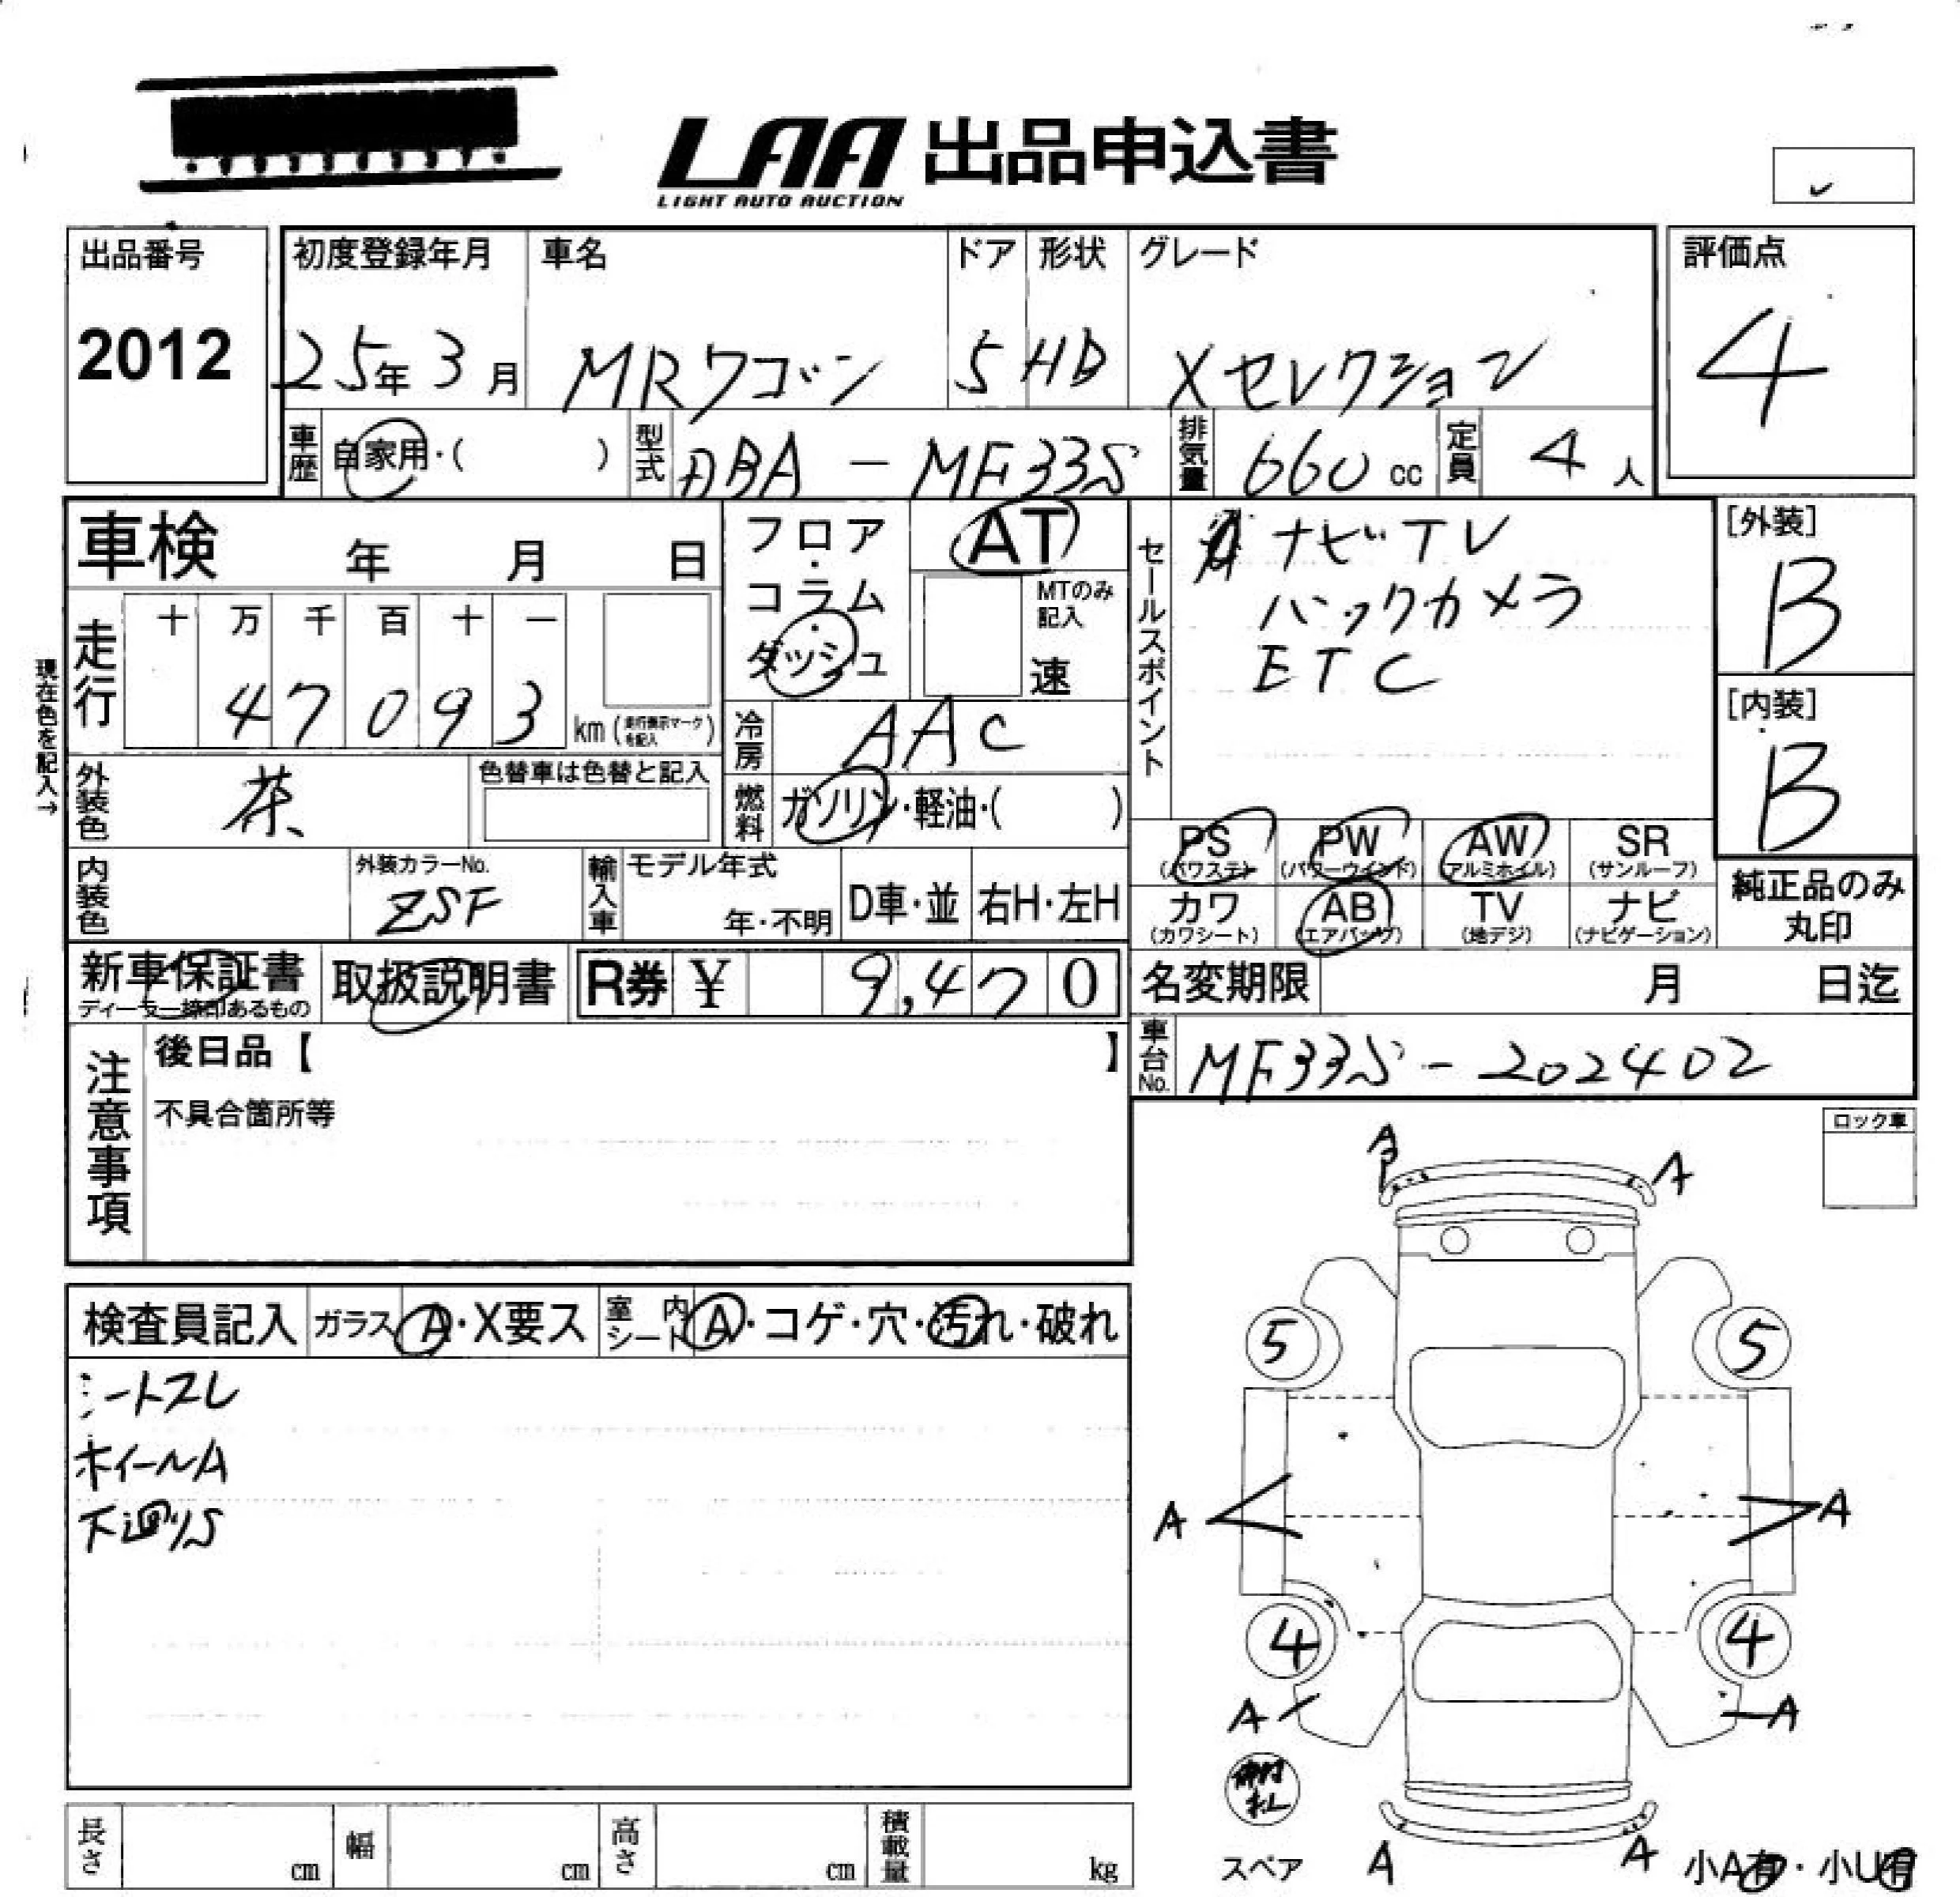 LAA 出品申込書
LIGHT AUTO AUCTION
出品番号 初度登録年月 車名 ドア 形状 グレード 評価点
2012 25年 3月 MRワゴン 5 HB Xセレクション 4
車歴 自家用・( ) 型式 DBA - MF33S 排気量 660 cc 定員 4 人
車検 年 月 日
フロア・コラム・ダッシュ
AT
MTのみ記入
速
セールスポイント
ナビTV
バックカメラ
ETC
[外装]
B
[内装]
B
現在色を記入→
走行 十 万 千 百 十 一
47093 km (走行表示マークを記入)
冷房 AAC
外装色 茶 色替車は色替と記入
燃料 ガソリン・軽油・( )
内装色 外装カラーNo. ZSF
輸入車 モデル年式 年・不明 D車・並 右H・左H
PS (パワステ) PW (パワーウインド) AW (アルミホイル) SR (サンルーフ)
カワ (カワシート) AB (エアバッグ) TV (地デジ) ナビ (ナビゲーション)
純正品のみ
丸印
新車保証書 取扱説明書 R券 ¥ 9,470
ディーラー捺印あるもの
名変期限 月 日迄
車台No. MF33S - 202402
注意事項
後日品【 】
不具合箇所等
ロック車
検査員記入 ガラス A・X要ス 室内シート A・コゲ・穴・汚れ・破れ
シートスレ
ホイールA
下廻りS
A A
5 5
A A
4 4
A A
スペア A A 小A有・小U有
長さ cm 幅 cm 高さ cm 積載量 kg